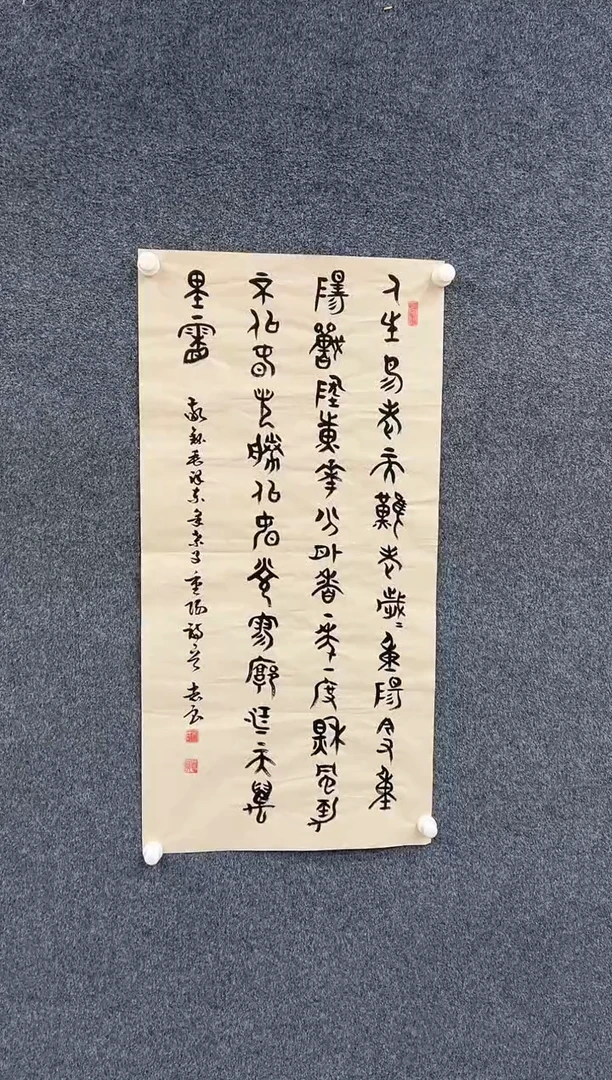 人生易老天難老歲〻重陽今又重
陽戰地黃華分外香一年一度秋風勁
不似春光勝似春光寥廓江天萬
里霜
敬錄毛澤東采桑子重陽詩